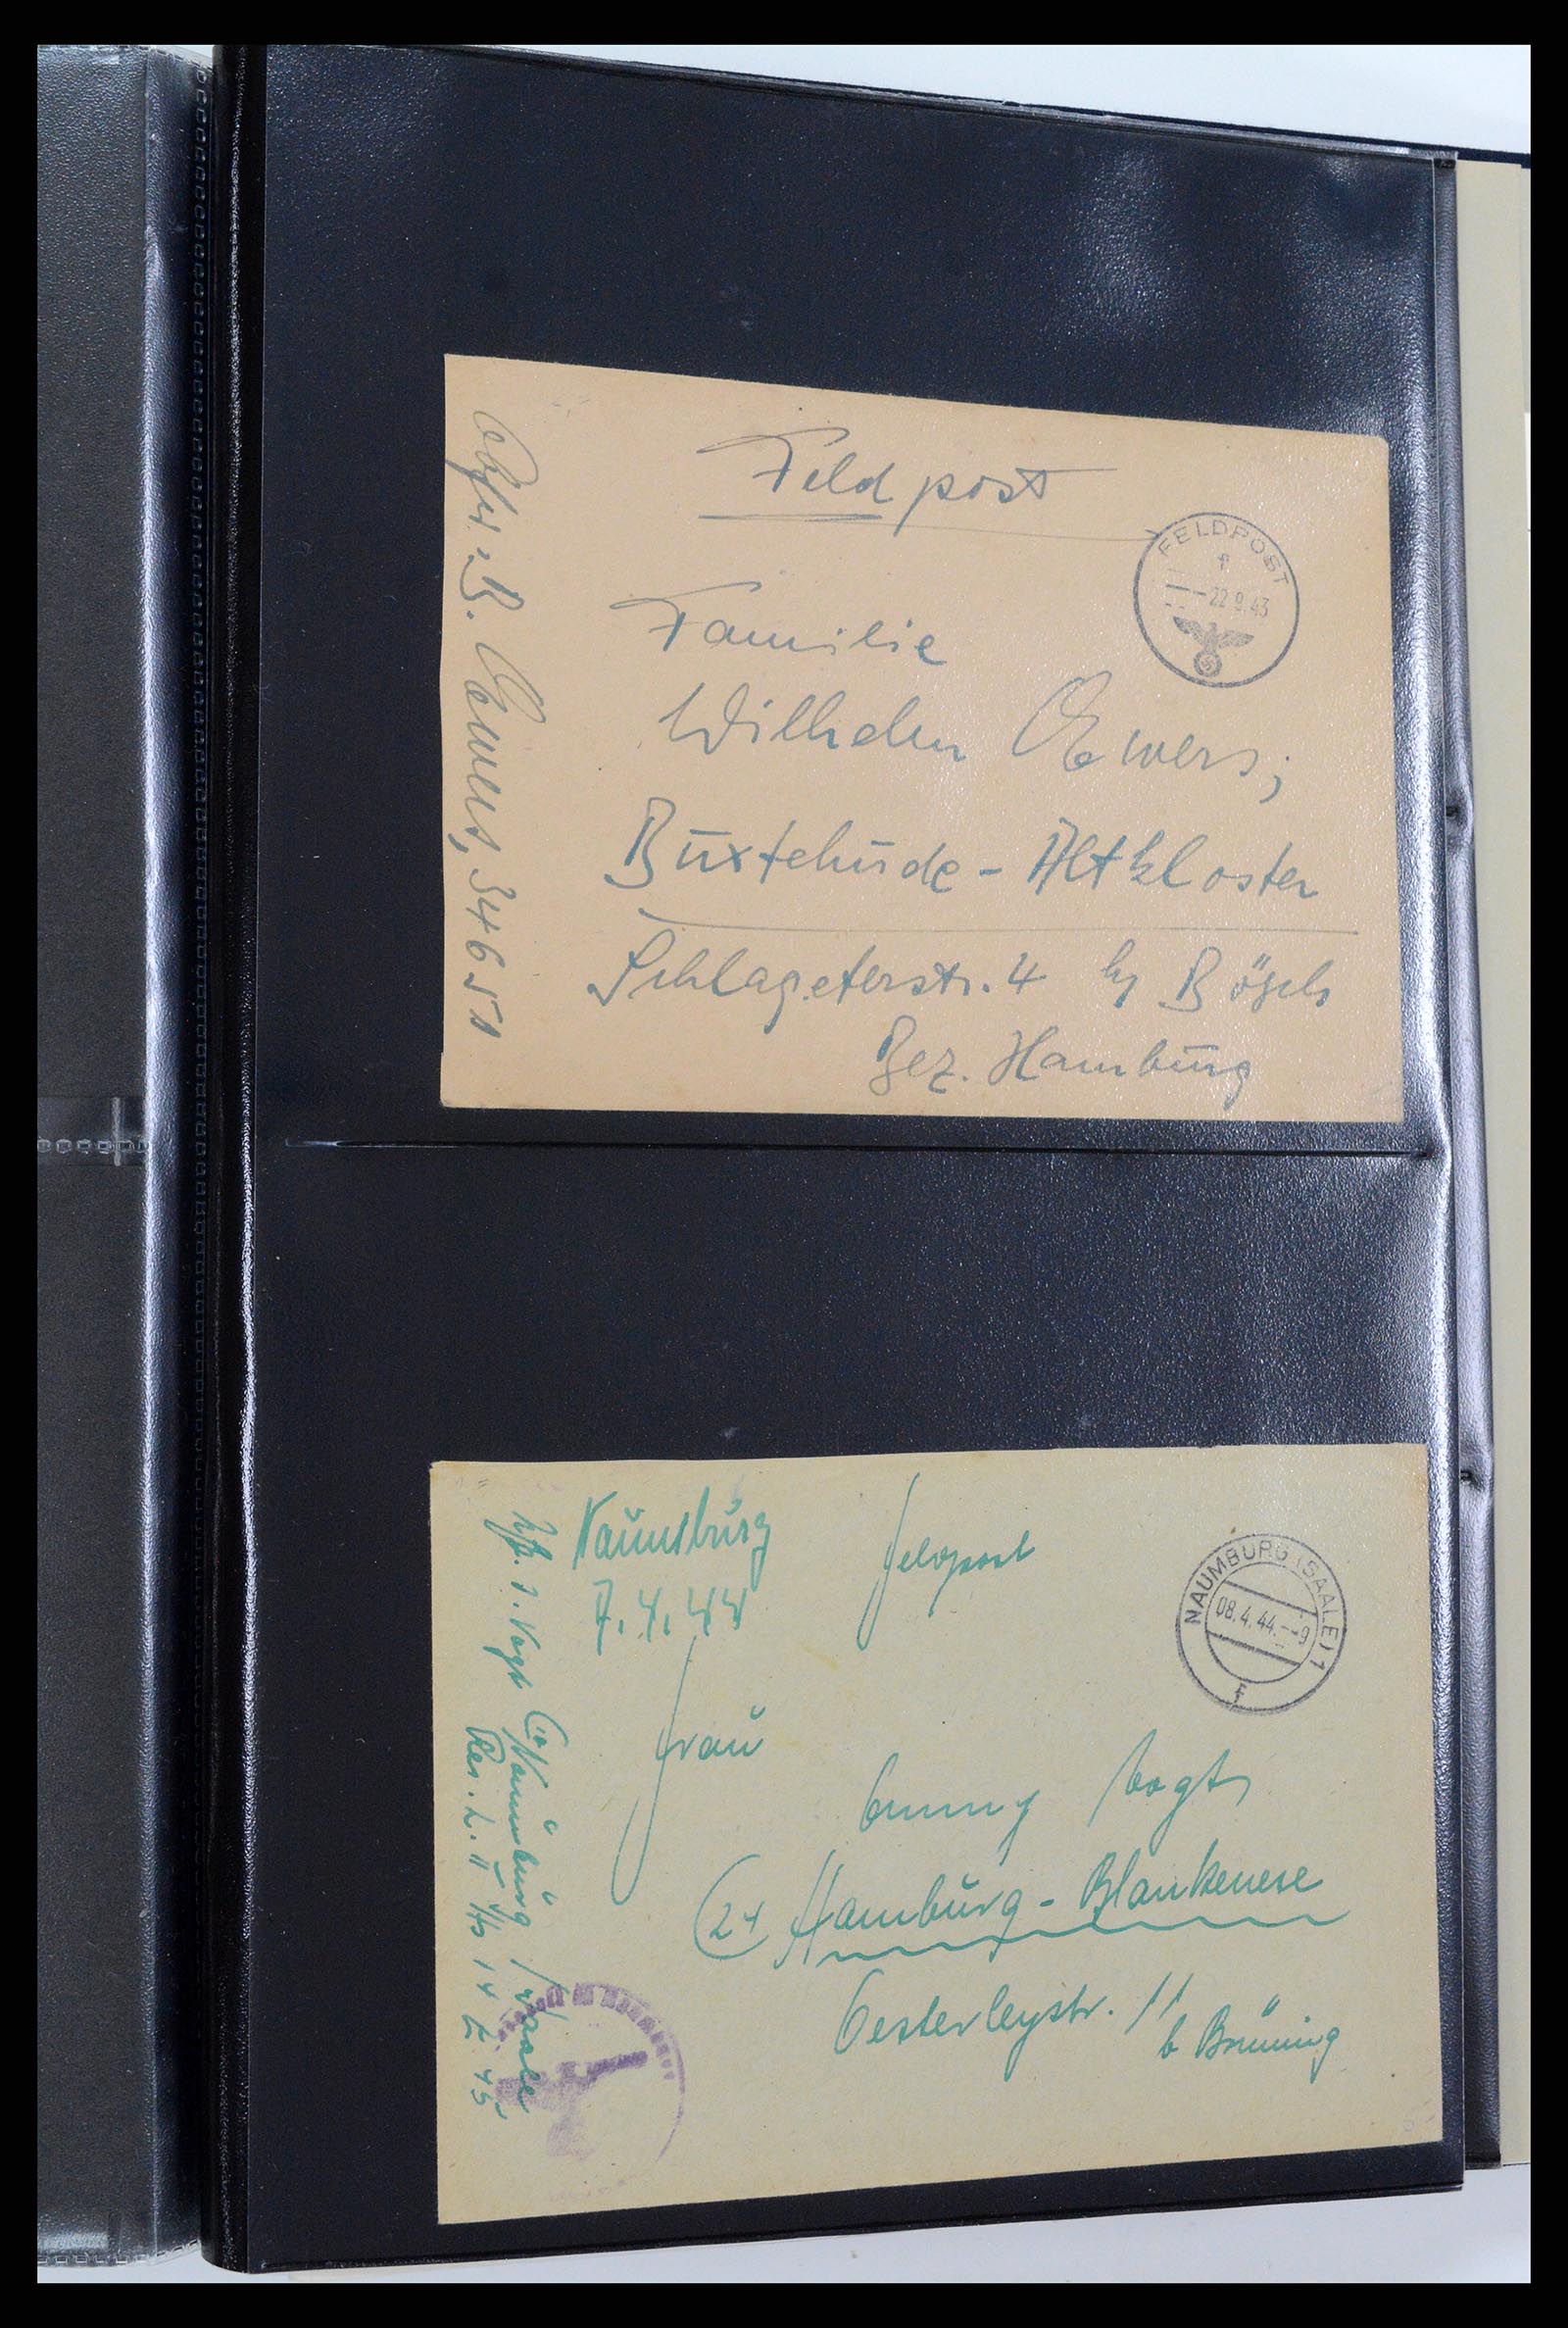 Feldpost
FELDPOST
22.9.43
Familie
Wilhelm Ewers,
Buxtehude - Altkloster
Schlageterstr. 4 bei
Bez. Hamburg
Ewers, 34651
Naumburg
7.4.44
Feldpost
NAUMBURG (SAALE) 1
08.4.44.--9
F
Frau
Vogt
(24 Hamburg - Blankenese
Oesterleystr. 11
b Brüning
Vogt Naumburg / Saale
Res. L. II